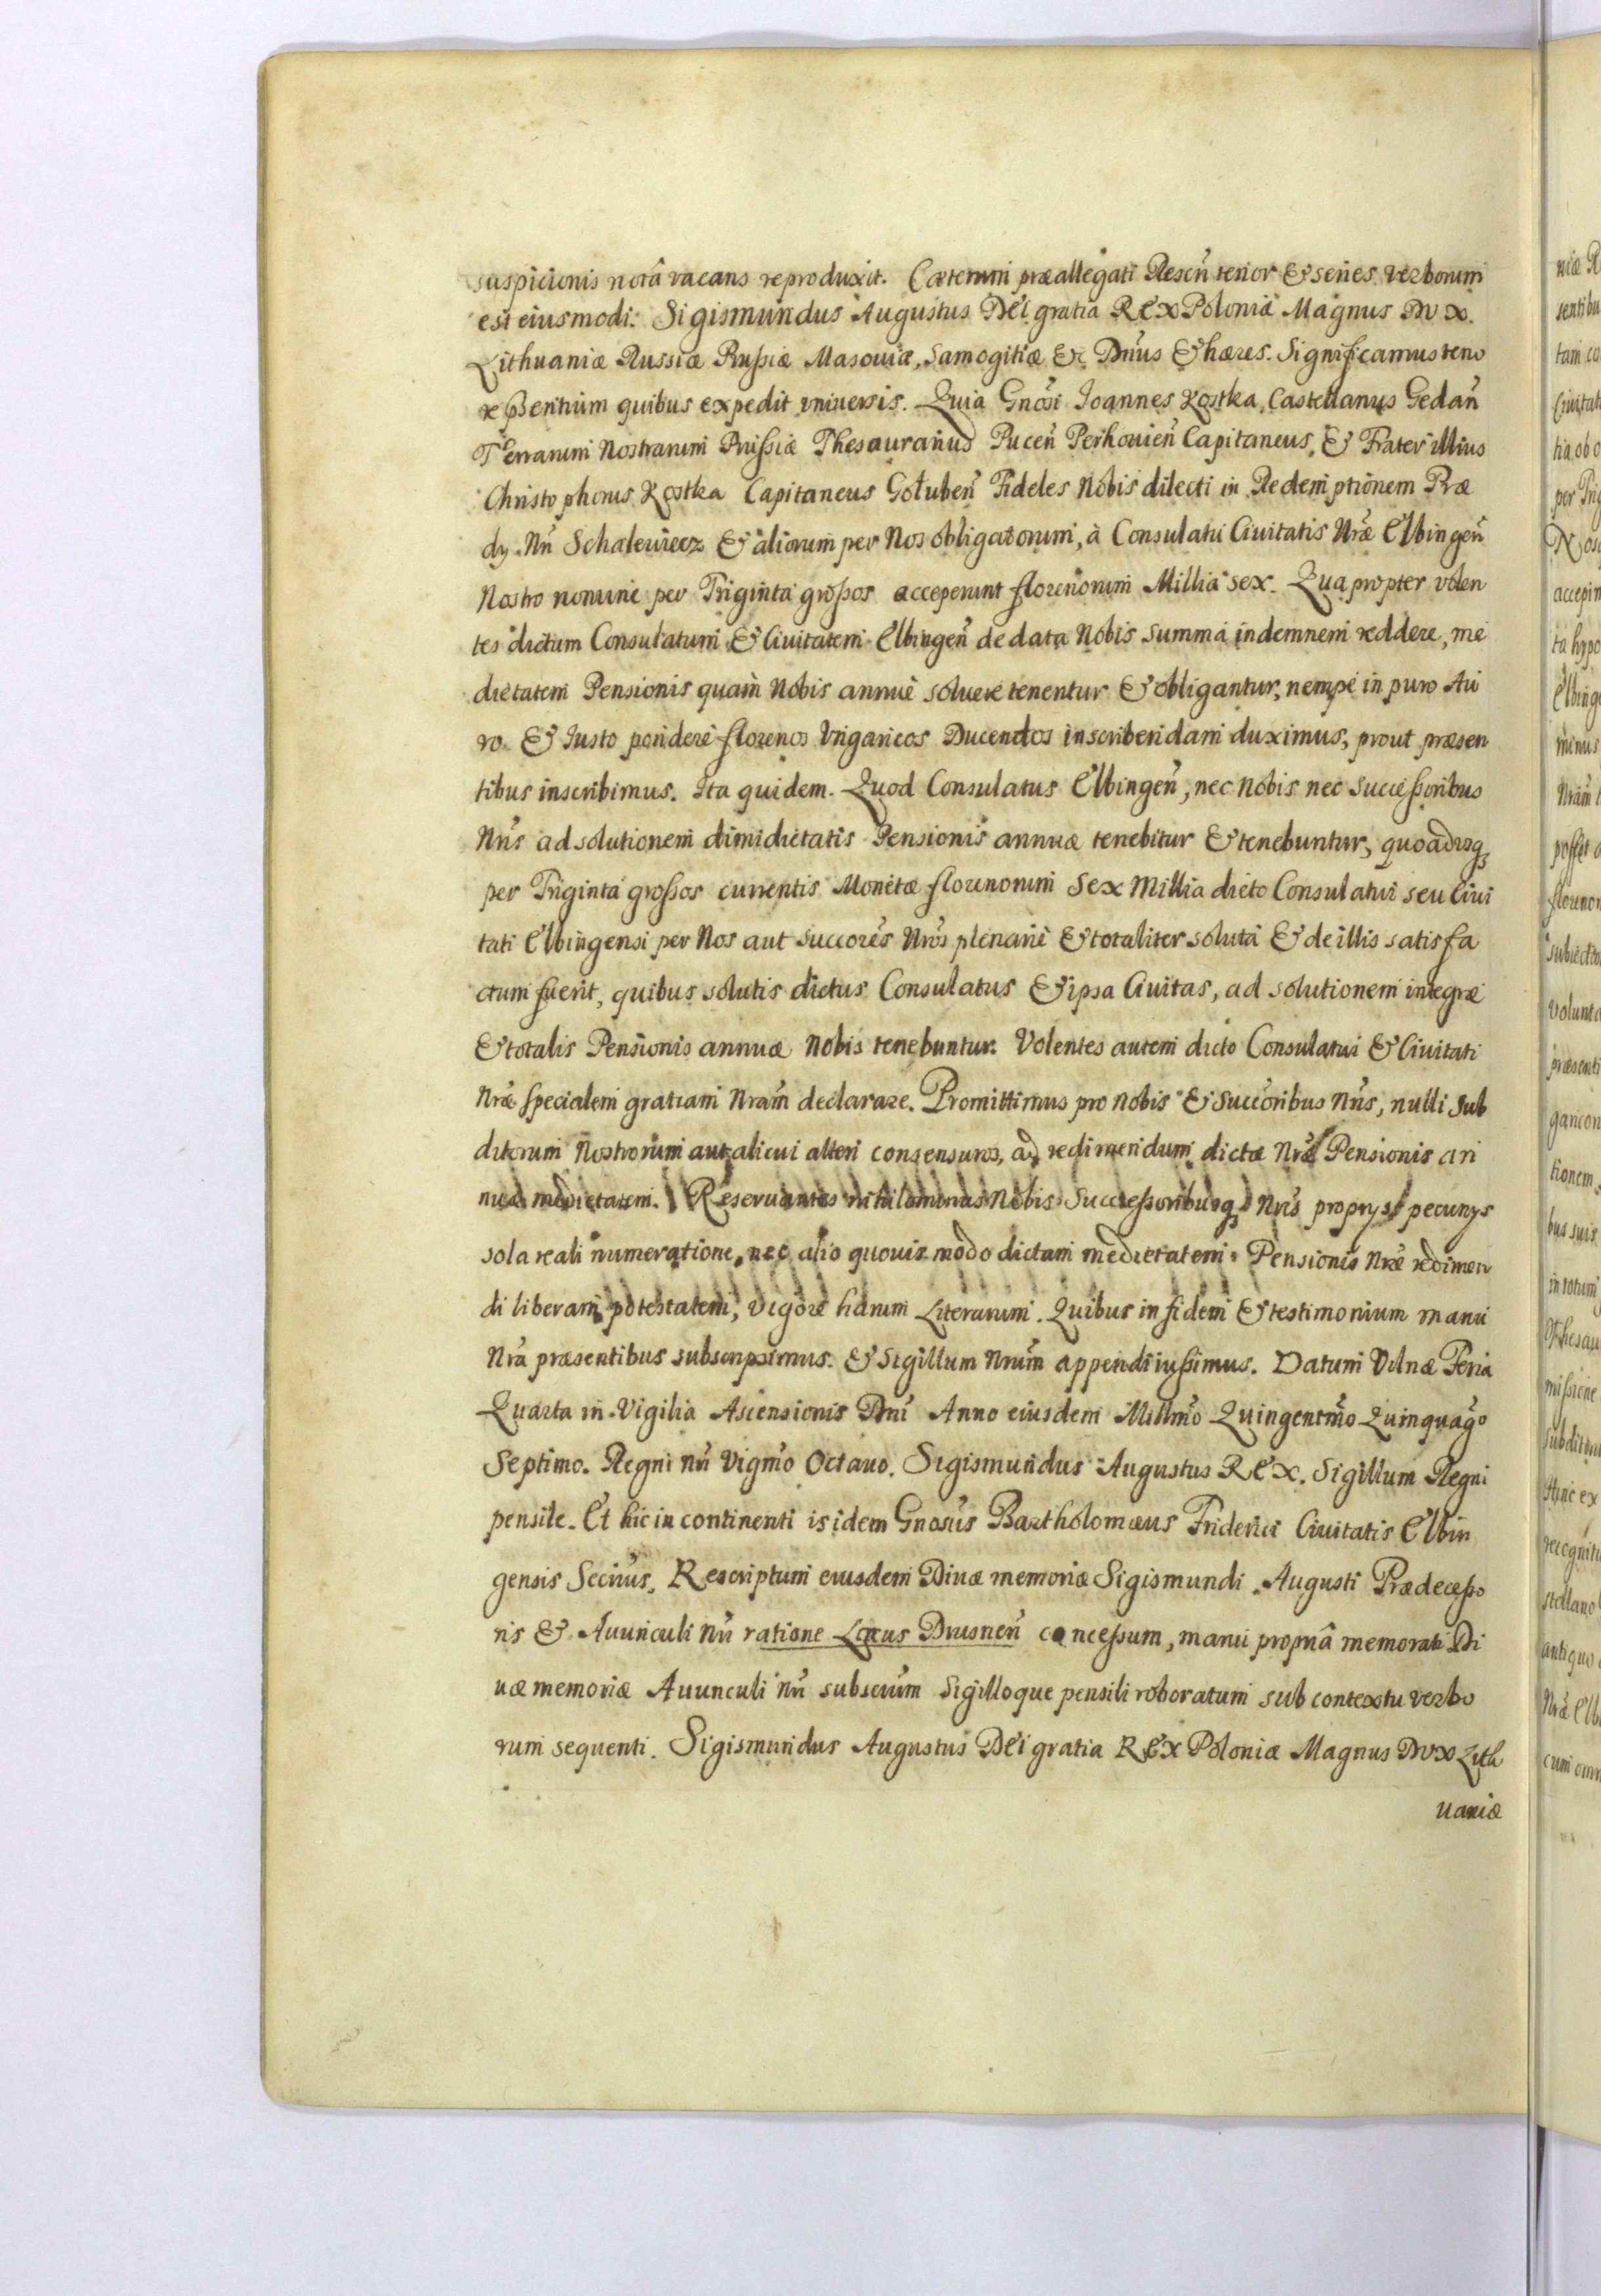 suspicionis notâ vacans reproduxit. Cæterum præallegati Rescñ tenor & series verborum
est eiusmodi: Sigismundus Augustus DEI gratia REX Poloniæ Magnus DVX.
Lithuaniæ Russiæ Prussiæ Masouiæ, Samogitiæ &c Dnús & hæres. Significamus teno
re pßentium quibus expedit vniuersis. Quia Gnósi Ioannes Kostka, Castellanus Gedañ
Terrarum Nostrarum Prussiæ Thesaurarius Puceñ Capitaneus, & Frater illius
Christophorus Kostka Capitaneus Gołubeñ Fideles Nobis dilecti in Redemptionem Præ
dy. Nñ & aliorum per Nos obligatorum, à Consulatu Ciuitatis Nræ Elbingeñ
Nostro nomine per Triginta grossos acceperunt florenorum Millia sex. Qua propter volen
tes dictum Consulatum & Ciuitatem Elbingeñ de data Nobis summa indemnem reddere, me
dietatem Pensionis quam Nobis annuè soluere tenentur & obligantur, nempe in puro Au
ro & Iusto pondere florenos Vngaricos Ducentos inscribendam duximus, prout præsen
tibus inscribimus. Ita quidem. Quod Consulatus Elbingeñ, nec Nobis nec Successoribus
Nrís ad solutionem dimidietatis Pensionis annuæ tenebitur & tenebuntur, quoadusq
per Triginta grossos currentis Monetæ florenorum Sex Millia dicto Consulatui seu Ciui
tati Elbingensi per Nos aut succorés Nrós plenarie & totaliter soluta & de illis satisfa
ctum fuerit, quibus solutis dictus Consulatus & ipsa Ciuitas, ad solutionem integræ
& totalis Pensionis annuæ Nobis tenebuntur. Volentes autem dicto Consulatui & Ciuitati
Nræ specialem gratiam Nrám declarare. Promittimus pro Nobis & Succoribus Nrís, nulli sub
ditorum Nostrorum aut alicui alteri consensuros, ad redimendum dictæ Nræ Pensionis an
nuæ medietatem. Reseruantes nihilominus Nobis Successoribusq Nrís proprys pecunys
sola reali numeratione, nec alio quouis modo dictam medietatem Pensionis Nræ redimen
di liberam potestatem, vigore harum Literarum. Quibus in fidem & testimonium manu
Nrá præsentibus subscripsimus. & Sigillum Nrum appendi iussimus. Datum Vilnæ Feria
Quarta in Vigilia Ascensionis Dní Anno eiusdem Millmo Quingentmo Quinquago
Septimo. Regni Nñ Vigmo Octauo. Sigismundus Augustus REX. Sigillum Regni
pensile. Et hic in continenti is idem Gnosus Bartholomæus Friderici Ciuitatis Elbin
gensis Secrius, Rescriptum eiusdem Diuæ memoriæ Sigismundi Augusti Prædecesso
ris & Auunculi Nñ ratione Lacus Drusneñ concessum, manu propriâ memorati Di
uæ memoriæ Auunculi Nñ subscrúm Sigilloque pensili roboratum sub contextu verbo
rum sequenti. Sigismundus Augustus DEI gratia REX Poloniæ Magnus DVX Lith
uaniæ